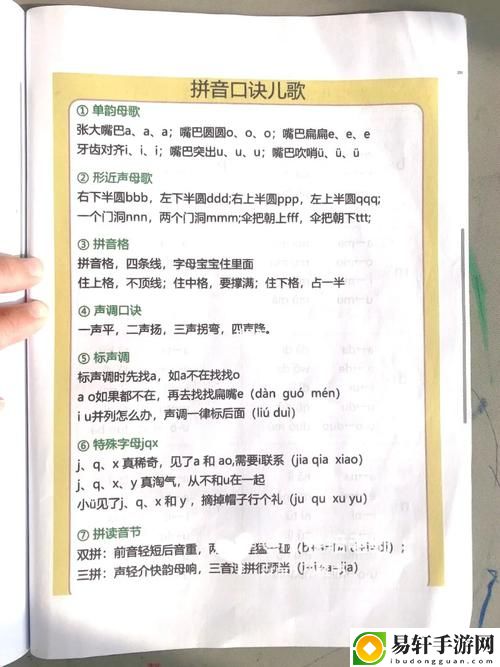 拼音口诀儿歌
① 单韵母歌
张大嘴巴a、a、a；嘴巴圆圆o、o、o；嘴巴扁扁e、e、e
牙齿对齐i、i、i；嘴巴突出u、u、u；嘴巴吹哨ü、ü、ü
② 形近声母歌
右下半圆bbb，左下半圆ddd;右上半圆ppp，左上半圆qqq;
一个门洞nnn，两个门洞mmm;伞把朝上fff，伞把朝下ttt;
③ 拼音格
拼音格，四条线，字母宝宝住里面
住上格，不顶线；住中格，要撑满；住下格，占一半
④ 声调口诀
一声平，二声扬，三声拐弯，四声降。
⑤ 标声调
标声调时先找a，如a不在找找o
a o如果都不在，再去找找扁嘴e（dàn guó mén）
i u并列怎么办，声调一律标后面（liú duì）
⑥ 特殊字母jqx
j、q、x 真稀奇，见了a 和 ao,需要i联系（jia qia xiao）
j、q、x、y 真淘气，从不和u在一起
小ü见了j、q、x 和 y ，摘掉帽子行个礼（ju qu xu yu）
⑦ 拼读音节
双拼：前音轻短后音重，两
三拼：声轻介快韵母响，三音
易轩手游网
ibudongguan.com